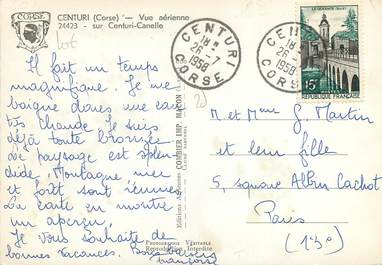 CORSE
CENTURI (Corse) — Vue aérienne
24423 - sur Centuri-Canelle
lot
Il fait un temps
magnifique. Je me
baigne dans une eau
très chaude. Je suis
déjà toute bronzée
Le paysage est splen
dide. Montagne, mer
et forêt sont réunies
La carte en montre
un aperçu.
Je vous souhaite de
bonnes vacances. Bons baisers
Françoise
Editions Aériennes COMBIER IMP. MACON
Photograph Véritable
Reproduction Interdite
CENTURI
18 H
26-7
1958
CORSE
CENTURI
18 H
26-7
1958
CORSE
LE QUESNOY (Nord)
15F
REPUBLIQUE FRANÇAISE
M. et Mme J. Martin
et leur fille
5, square Albin Cachot
Paris
(13e)